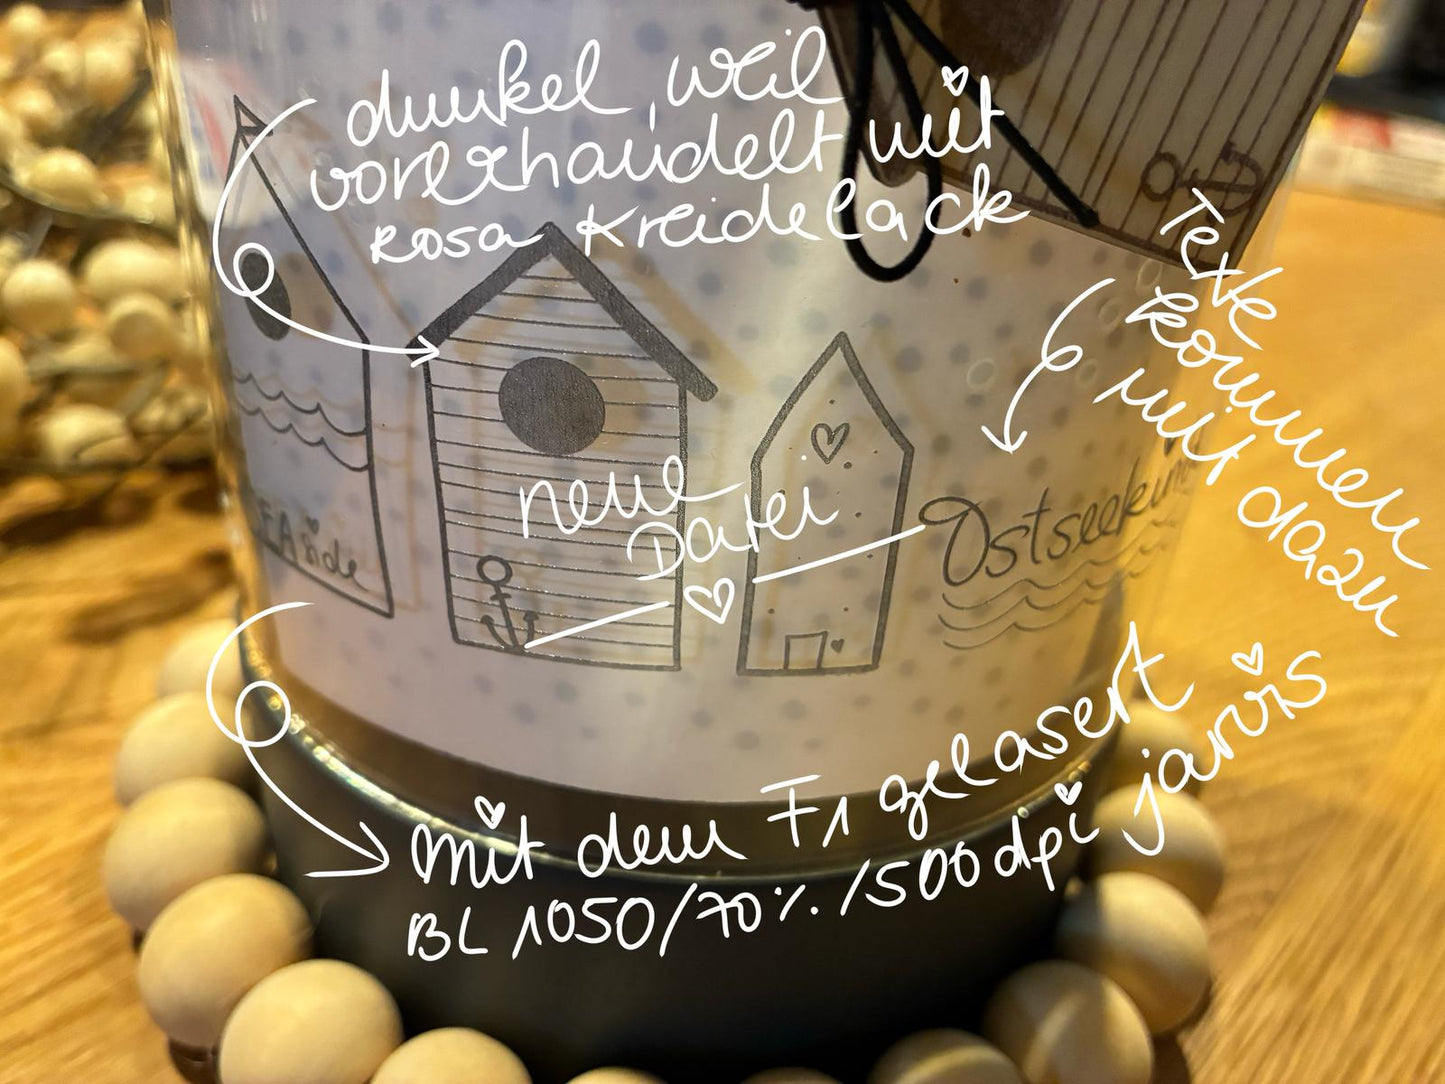 dunkel, weil
vorbehandelt mit
rosa Kreidelack
Texte
kommen
mit dazu
neue
Datei
SEAside
Ostseekind
mit dem F1 gelasert
BL 1050/70%./1500dpi jarvis